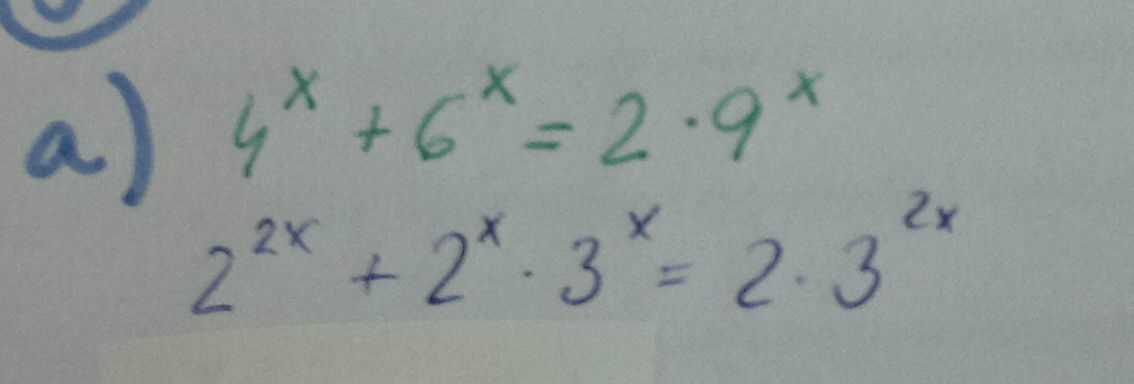 a) 4^x + 6^x = 2 · 9^x
2^{2x} + 2^x · 3^x = 2 · 3^{2x}